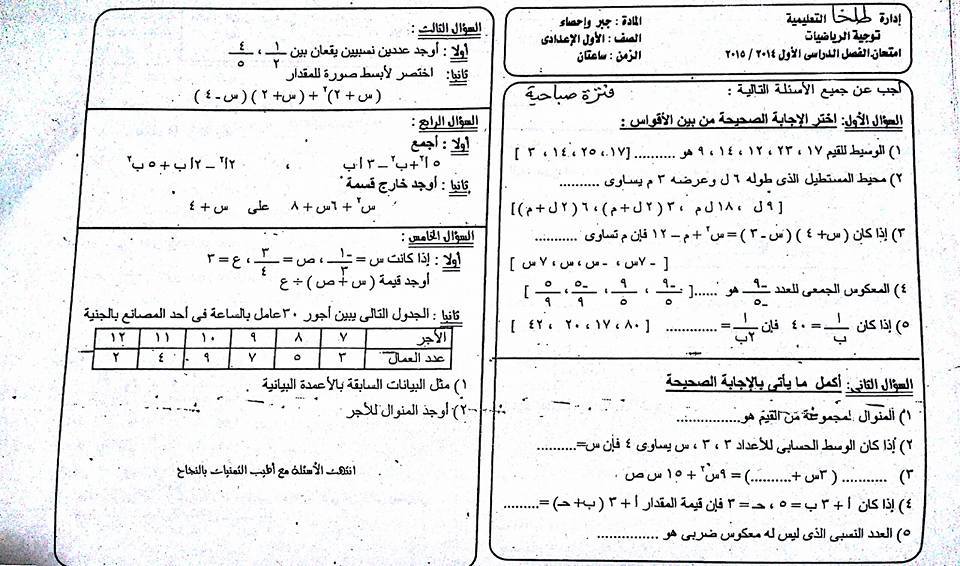 إدارة طلخا التعليمية
توجية الرياضيات
امتحان الفصل الدراسى الأول ٢٠١٤ / ٢٠١٥
المادة : جبر وإحصاء
الصف : الأول الإعدادى
الزمن : ساعتان
أجب عن جميع الأسئلة التالية : فترة صباحية
السؤال الأول: اختر الإجابة الصحيحة من بين الأقواس :
١) الوسيط للقيم ١٧ ، ٢٣ ، ١٢ ، ١٤ ، ٩ هو .......... [١٧ ، ٢٥ ، ١٤ ، ٣ ]
٢) محيط المستطيل الذى طوله ٦ ل وعرضه ٣ م يساوى ..........
[ ٩ ل ، ١٨ ل م ، ٣ ( ٢ ل + م ) ، ٦ ( ٢ ل + م ) ]
٣) إذا كان (س + ٤ ) ( س - ٣ ) = س٢ + م – ١٢ فإن م تساوى ...........
[ - ٧س ، - س ، س ، ٧ س ]
٤) المعكوس الجمعى للعدد -٩/-٥ هو ......[ -٩/٥ ، ٩/٥ ، -٥/٩ ، ٥/٩ ]
٥) إذا كان ١/ب = ٤٠ فإن ١/٢ب = ............ [ ٨٠ ، ١٧ ، ٢٠ ، ٤٢ ]
السؤال الثانى: أكمل ما يأتى بالإجابة الصحيحة
١) المنوال لمجموعة من القيم هو................
٢) إذا كان الوسط الحسابى للأعداد ٣ ، ٣ ، س يساوى ٤ فإن س=..........
٣) ........... ( ٣س +..........) = ٩س٢ + ١٥ س ص
٤) إذا كان أ + ٣ ب = ٥ ، حـ = ٣ فإن قيمة المقدار أ + ٣ ( ب+ حـ) =.........
٥) العدد النسبى الذى ليس له معكوس ضربى هو ...............
السؤال الثالث :
أولا : أوجد عددين نسبيين يقعان بين ١/٢ ، ٤/٥
ثانيا : اختصر لأبسط صورة للمقدار
( س + ٢)٢ + ( س + ٢ ) ( س - ٤ )
السؤال الرابع :
أولا : أجمع
٥ أ٢ + ب٢ – ٣ أ ب ، ٢أ٢ – ٢أ ب + ٥ ب٢
ثانيا : أوجد خارج قسمة
س٢ + ٦س + ٨ على س + ٤
السؤال الخامس :
أولا : إذا كانت س = -١/٣ ، ص = ٣/٤ ، ع = ٣
أوجد قيمة ( س + ص ) ÷ ع
ثانيا : الجدول التالى يبين أجور ٣٠عامل بالساعة فى أحد المصانع بالجنية
الأجر ٧ ٨ ٩ ١٠ ١١ ١٢
عدد العمال ٣ ٥ ٧ ٩ ٤ ٢
١) مثل البيانات السابقة بالأعمدة البيانية
٢) أوجد المنوال للأجر
انتهت الأسئلة مع أطيب التمنيات بالنجاح